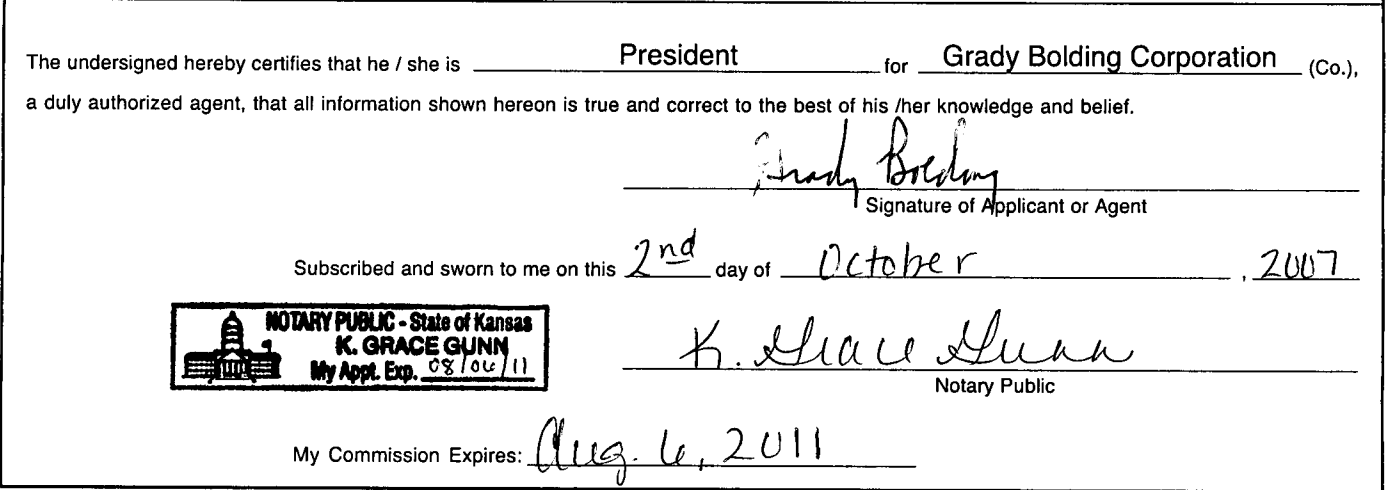 The undersigned hereby certifies that he / she is President for Grady Bolding Corporation (Co.),
a duly authorized agent, that all information shown hereon is true and correct to the best of his /her knowledge and belief.
Grady Bolding
Signature of Applicant or Agent
Subscribed and sworn to me on this 2nd day of October , 2007
NOTARY PUBLIC - State of Kansas
K. GRACE GUNN
My Appt. Exp. 08/06/11
K. Grace Gunn
Notary Public
My Commission Expires: Aug. 6, 2011